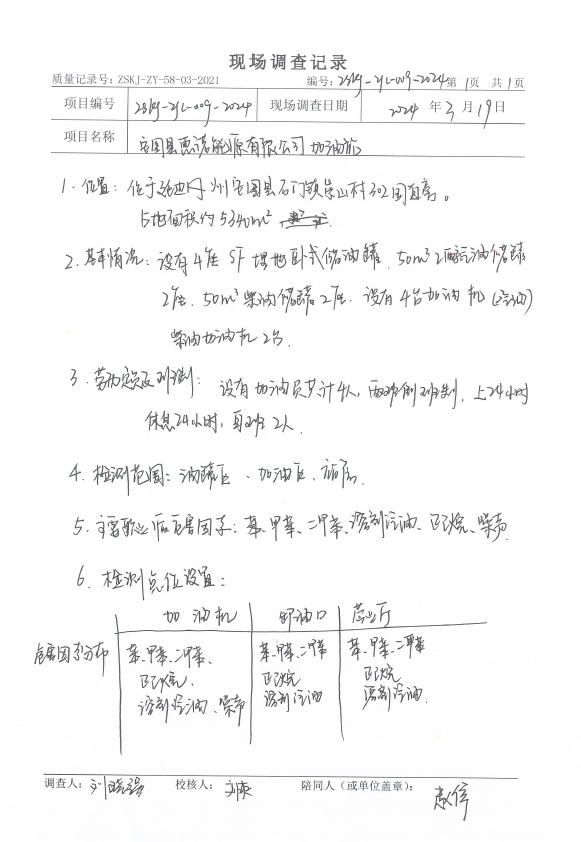 现场调查记录
质量记录号: ZSKJ-ZY-58-03-2021 编号: ZSKJ-ZYL-009-2024 第1页 共1页
项目编号 ZSKJ-ZYL-009-2024 现场调查日期 2024 年 3 月 19 日
项目名称 县惠诺能源有限公司加油站
1. 位置: 位于 州 县石门镇 山村302国道旁。
占地面积约5340m²
2. 基本情况: 设有4座SF埋地卧式储油罐, 50m³ 汽油储罐
2座, 50m³柴油储罐2座. 设有4台加油机 (2汽油)
柴油加油机2台.
3. 劳动定员及班制: 设有加油员共计4人, 两班制, 上24小时
休息24小时, 每班2人.
4. 检测范围: 油罐区、加油区、站房.
5. 主要职业病危害因子: 苯、甲苯、二甲苯、溶剂汽油、正己烷、噪声.
6. 检测点位设置:
加油机 卸油口 营业厅
危害因素分布 苯、甲苯、二甲苯、 苯、甲苯、二甲苯 苯、甲苯、二甲苯
正己烷、 正己烷 正己烷
溶剂汽油、噪声 溶剂汽油 溶剂汽油.
调查人: 刘晓强 校核人: 陪同人（或单位盖章）: